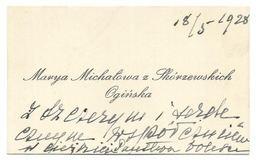 18/5 1928
Marya Michałowa z Skórzewskich
Ogińska
z szczerym i serde
cznym współczuciem
w